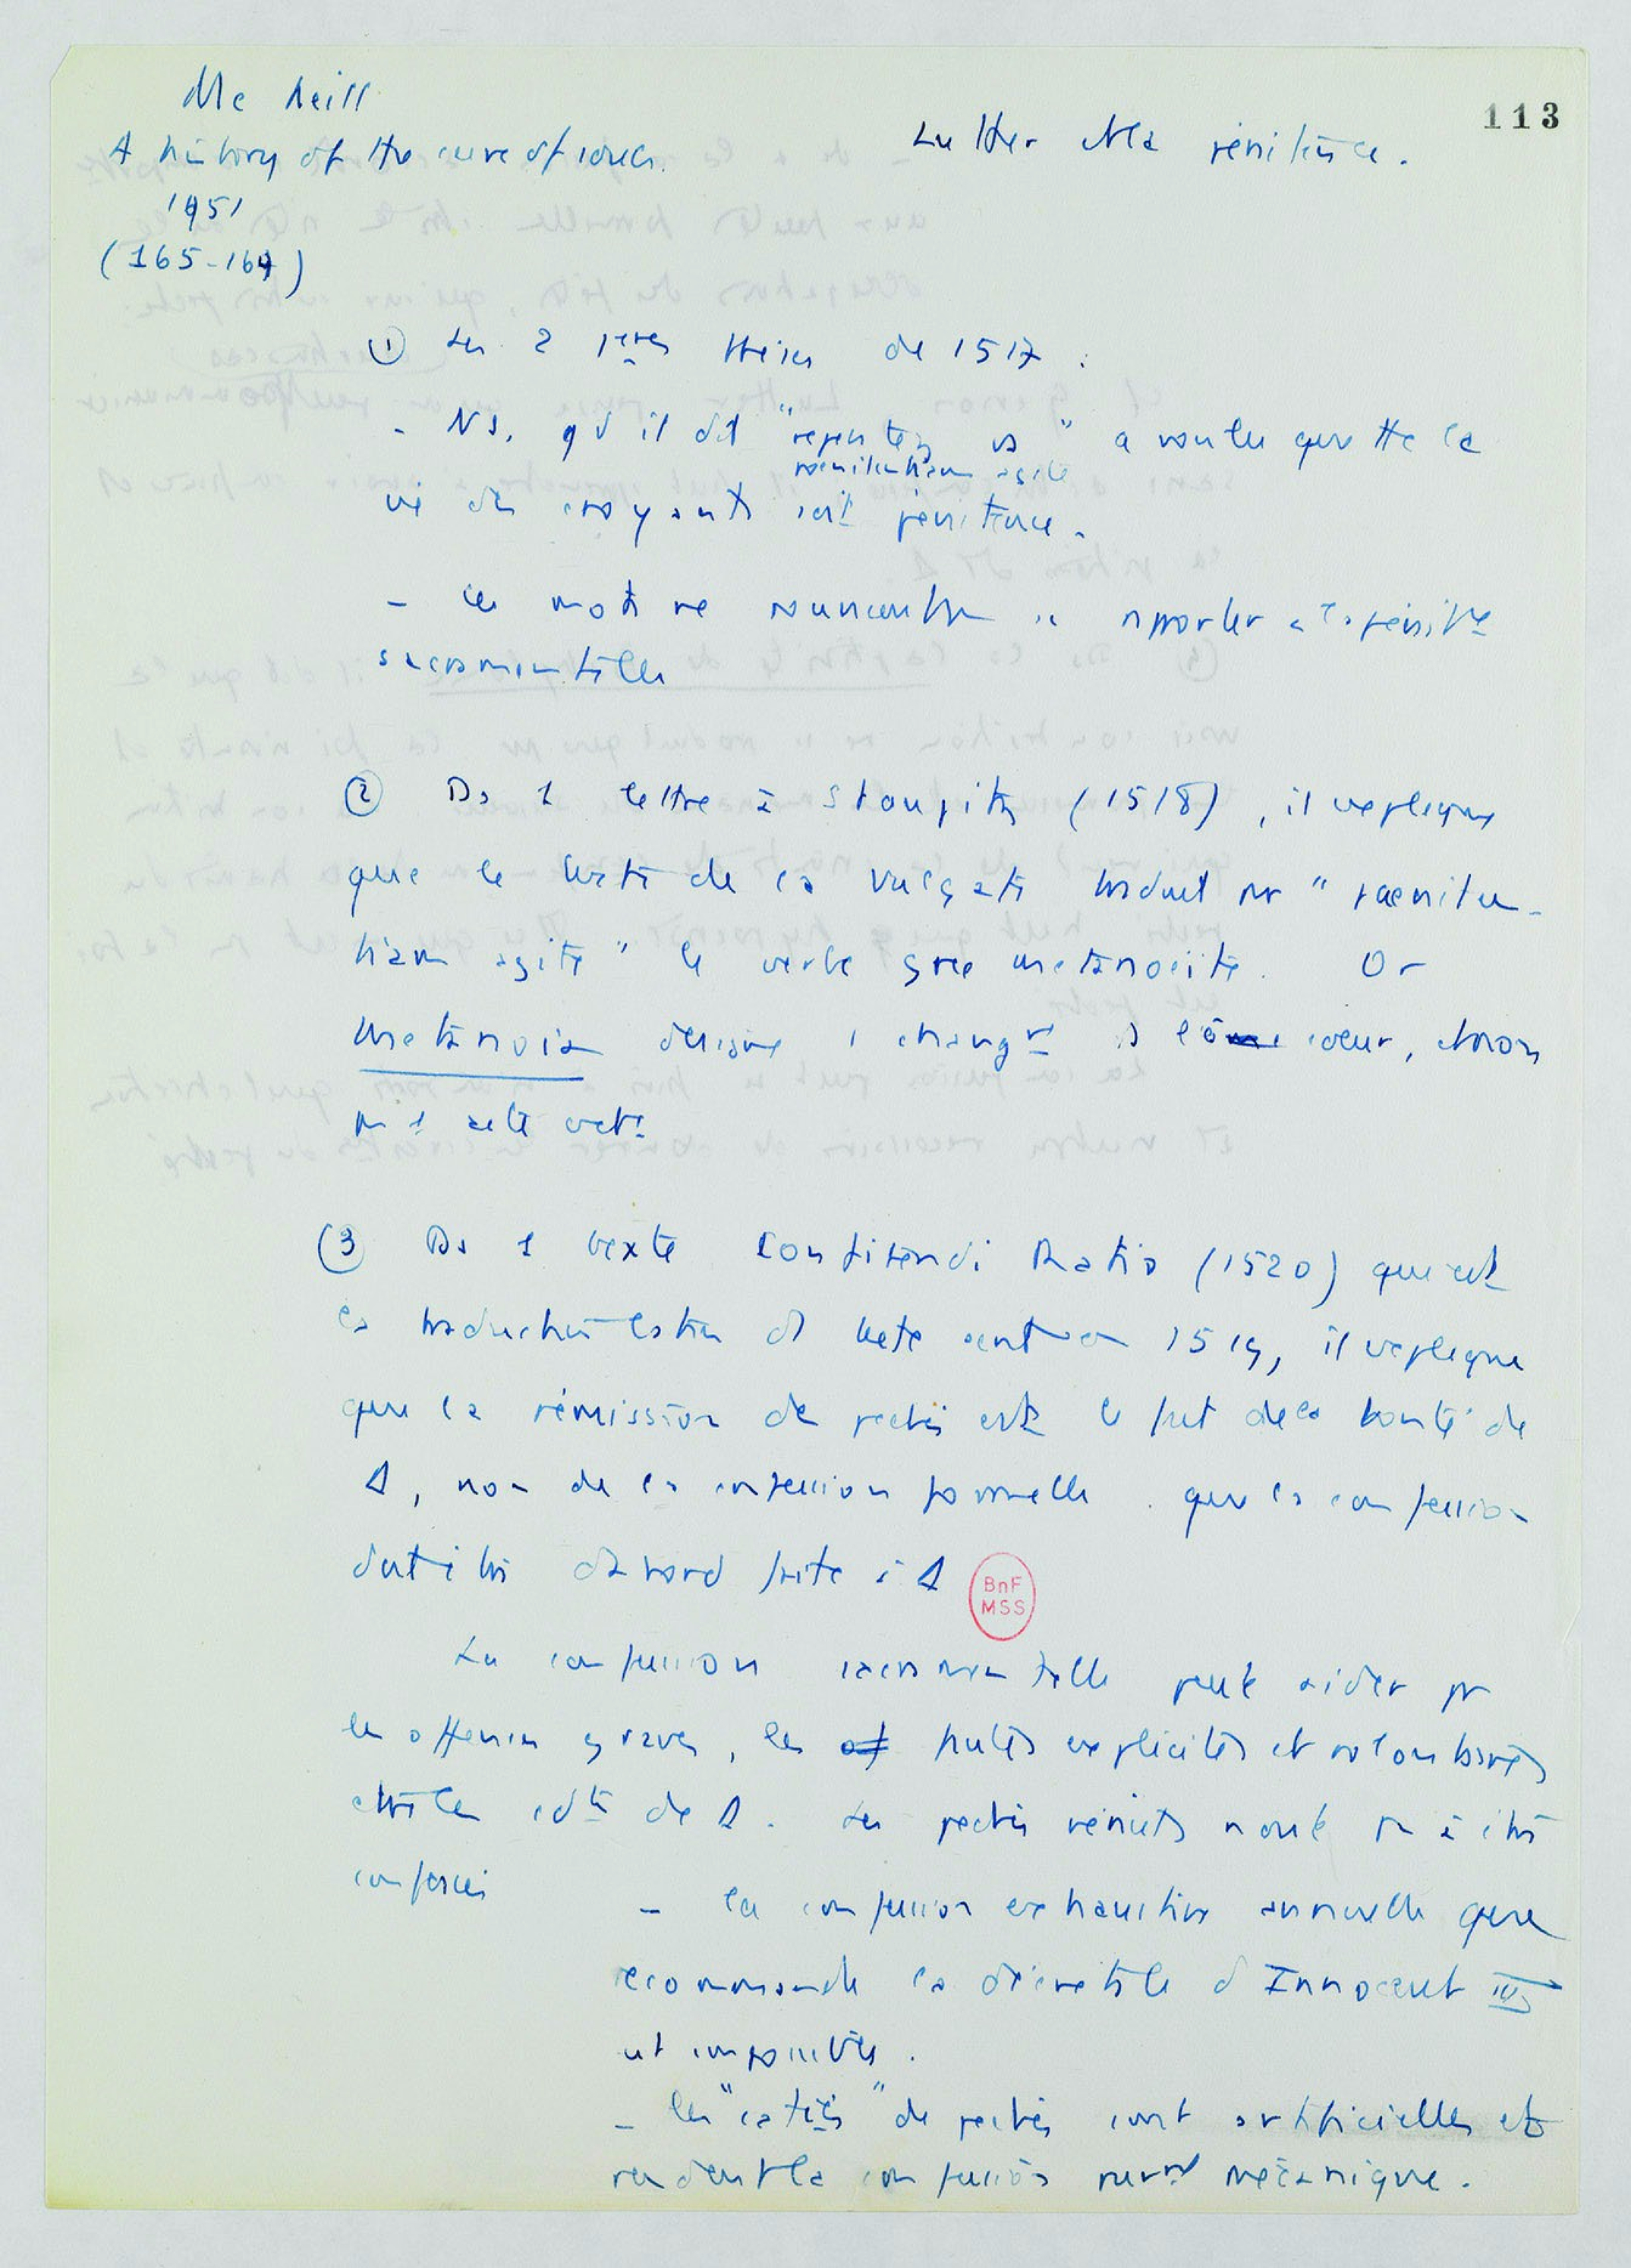 Mc Neill
A history of the cure of souls.
1951
(165-167)
Luther et la pénitence.
113
① Les 2 1ères thèses de 1517 :
- NS, qd il dit "repentez vs" a voulu que tte la
poenitentiam agite
vie des croyants soit pénitence.
- Ces mots ne sauraient se rapporter à la pénitce
sacramentelle
② Ds 1 lettre à Staupitz (1518), il explique
que le texte de la Vulgate traduit par "paeniten-
tiam agite" le verbe grec metanoeite. Or
Metanoia désigne 1 changt de coeur, et non
pas 1 acte extr
③ Ds 1 texte Confitendi Ratio (1520) qui est
la traduction latine d texte écrit en 1519, il explique
que la rémission des péchés est le fait de la bonté de
Δ, non de la confession formelle. que la confession
doit être d'abord faite à Δ
BnF
MSS
La confession sacramentelle peut aider pr
les offenses graves, les fautes explicites et volontaires
ctre les cdts de Δ. Les péchés véniels n'ont pas à être
confessés
- la confession exhaustive annuelle que
recommande la décrétale d'Innocent III
est impossible.
- les "caties" de péchés sont artificielles et
rendent la confession purt mécanique.